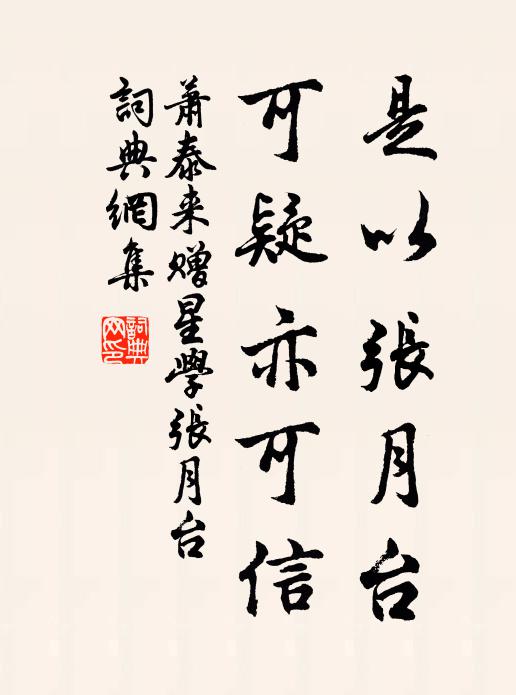 是以張月台
可疑亦可信
蕭泰来赠星學張月台
詞典網集
詞典網印